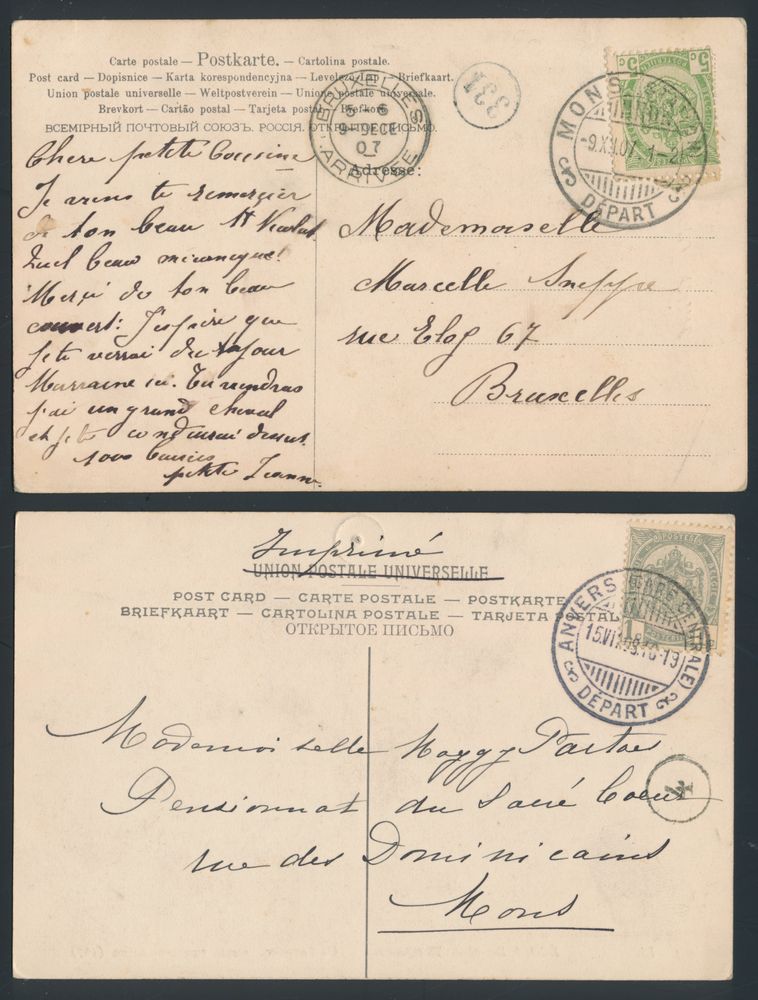 Carte postale — Postkarte. — Cartolina postale.
Post card — Dopisnice — Karta korespondencyjna — Levelező-Lap — Briefkaart.
Union postale universelle — Weltpostverein — Unione postale universale.
Brevkort — Cartão postal — Tarjeta postal — Brefkort
ВСЕМІРНЫЙ ПОЧТОВЫЙ СОЮЗЪ. РОССІЯ. ОТКРЫТОЕ ПИСЬМО.
BRUXELLES
9 DEC
07
ARRIVÉE
331
5 5
MONS
-9.XII.07 1-2
DÉPART
Adresse:
Chere petite Cousine
Je viens te remercier
de ton beau St Nicolas.
Quel beau mecanique!
Merçi de ton beau
couvert: J'espère que
je te verrai du jour
Marraine ici. Tu viendras
j'ai un grand cheval
et je te conduirai dessus.
1000 baisers
petite Jeanne
Mademoiselle
Marcelle Sneppe
rue 67
Bruxelles
Imprimé
UNION POSTALE UNIVERSELLE
POST CARD — CARTE POSTALE — POSTKARTE
BRIEFKAART — CARTOLINA POSTALE — TARJETA POSTAL
ОТКРЫТОЕ ПИСЬМО
ANVERS (GARE CENTRALE)
DÉPART
4
Mademoiselle Maggy
Pensionnat du Sacré Coeur
rue des Dominicains
Mons